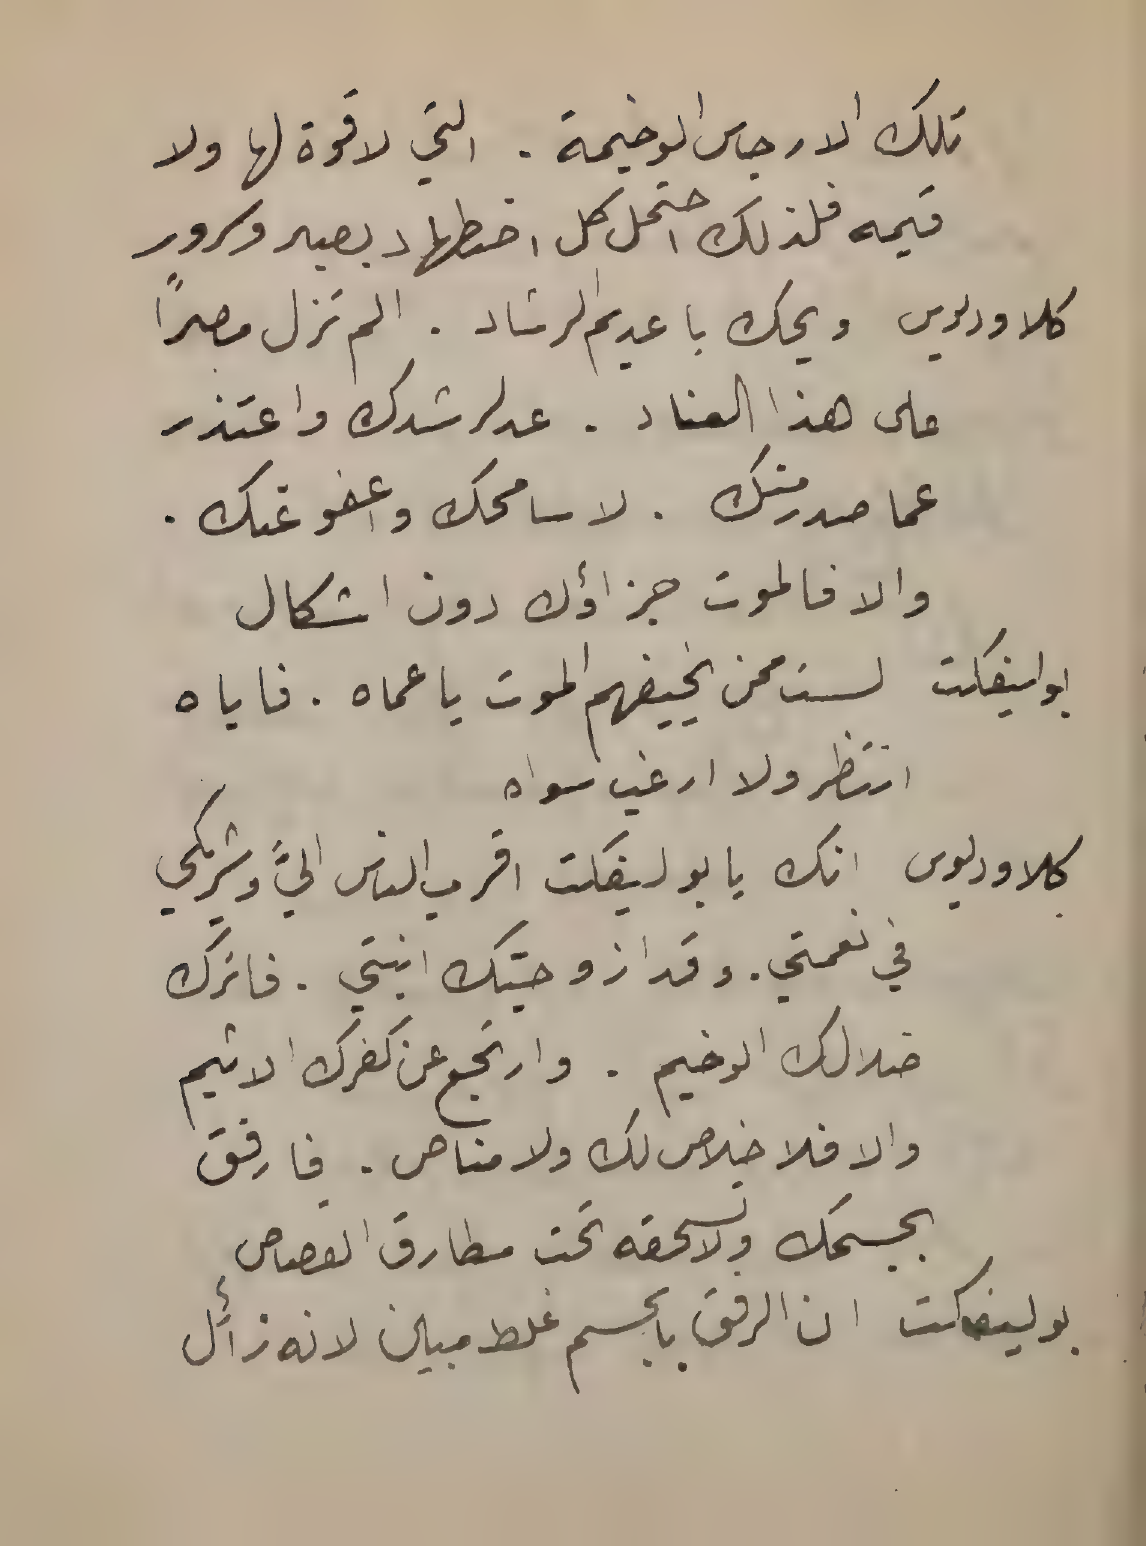 تلك الارجاس الوخيمة . التي لا قوة لها ولا
قيمه فلذلك احتمل كل اضطهاد بصبر وسرور
كلاوديوس ويحك يا عديم الرشاد . الم تزل مصرًا
على هذا العناد . عد لرشدك واعتذر
عما صدر منك . لاسامحك واعفو عنك .
والا فالموت جزاؤك دون اشكال
بوليفكت لست ممن يخيفهم الموت يا عماه . فاياه
انتظر ولا ارغب سواه
كلاوديوس انك يا بوليفكت اقرب الناس اليَّ وشريكي
في نعمتي . وقد ازوجتك ابنتي . فاترك
ضلالك الوخيم . وارتجع عن كفرك الاثيم
والا فلا خلاص لك ولا مناص . فارفق
بجسمك ولا تسحقه تحت مطارق القصاص
بوليفكت ان الرفق بالجسم غلط مبين لانه زائل